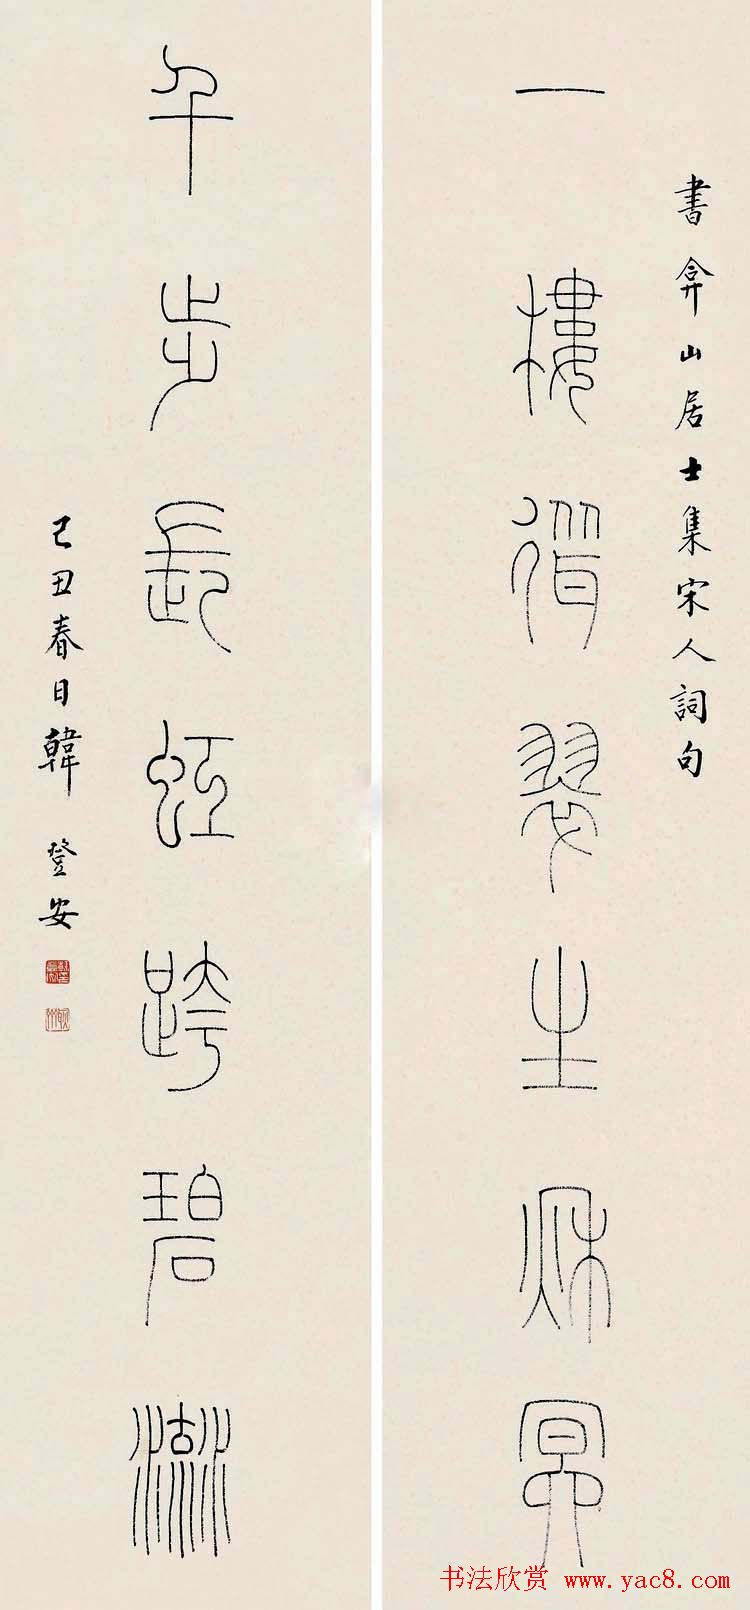 書弇山居士集宋人詞句
一樓翠生秋冥
千步長虹跨碧流
己丑春日韓登安
书法欣赏 www.yac8.com